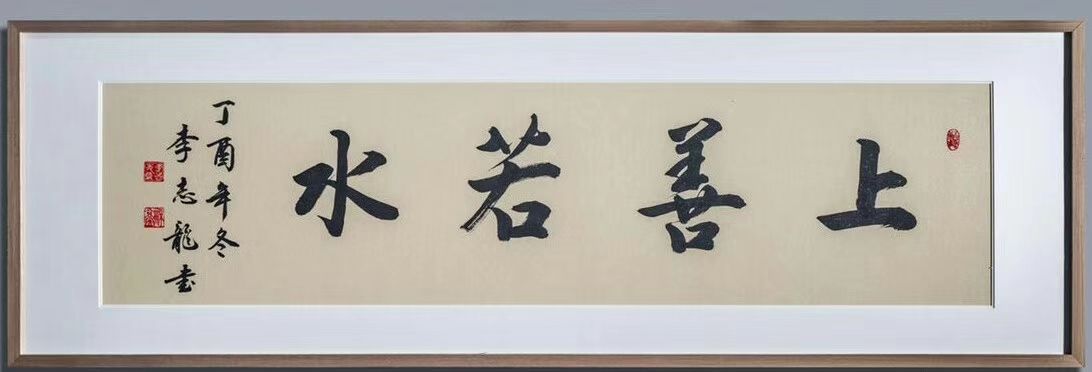 上善若水
丁酉年冬
李志龍书